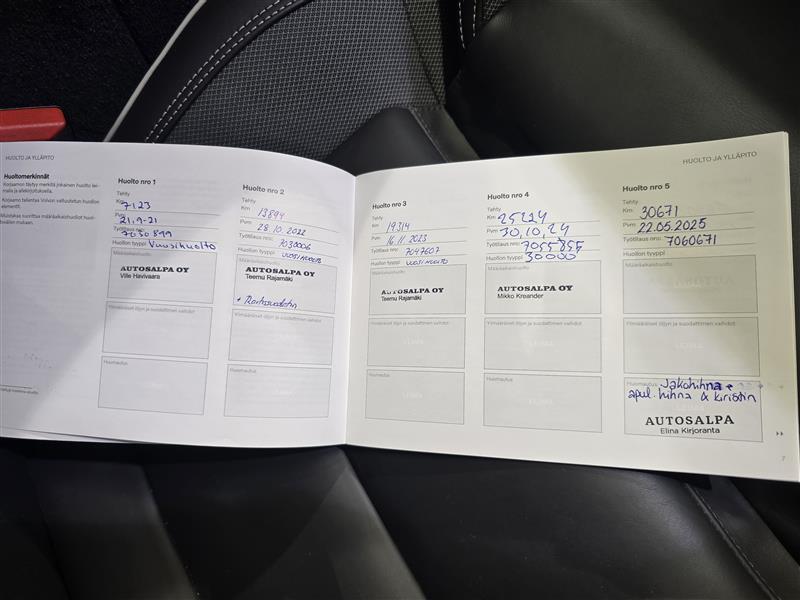 HUOLTO JA YLLÄPITO
Huoltomerkinnät
Huolto nro 1
Tehty
Km 7123
Pvm 21.9-21
Työtilaus nro: 7030899
Huollon tyyppi Vuosihuolto
Määräaikaishuolto
AUTOSALPA OY
Ville Havivaara
Ylimääräiset öljyn ja suodattimen vaihdot
Huomautus
Huolto nro 2
Tehty
Km 13894
Pvm 28.10.2022
Työtilaus nro: 7030006
Huollon tyyppi VUOSIHUOLTO
Määräaikaishuolto
AUTOSALPA OY
Teemu Rajamäki
+ Raitissuodatin
Ylimääräiset öljyn ja suodattimen vaihdot
Huomautus
Huolto nro 3
Tehty
Km 19314
Pvm 16.11.2023
Työtilaus nro: 7047607
Huollon tyyppi VUOSIHUOLTO
Määräaikaishuolto
AUTOSALPA OY
Teemu Rajamäki
Ylimääräiset öljyn ja suodattimen vaihdot
Huomautus
Huolto nro 4
Tehty
Km 25224
Pvm 30,10,24
Työtilaus nro: 7055855
Huollon tyyppi 30000
Määräaikaishuolto
AUTOSALPA OY
Mikko Kreander
Ylimääräiset öljyn ja suodattimen vaihdot
Huomautus
HUOLTO JA YLLÄPITO
Huolto nro 5
Tehty
Km: 30671
Pvm: 22.05.2025
Työtilaus nro.: 7060671
Huollon tyyppi
Määräaikaishuolto
Ylimääräiset öljyn ja suodattimen vaihdot
Huomautus Jakohihna +
apul. hihna & kiristin
AUTOSALPA
Elina Kirjoranta
7